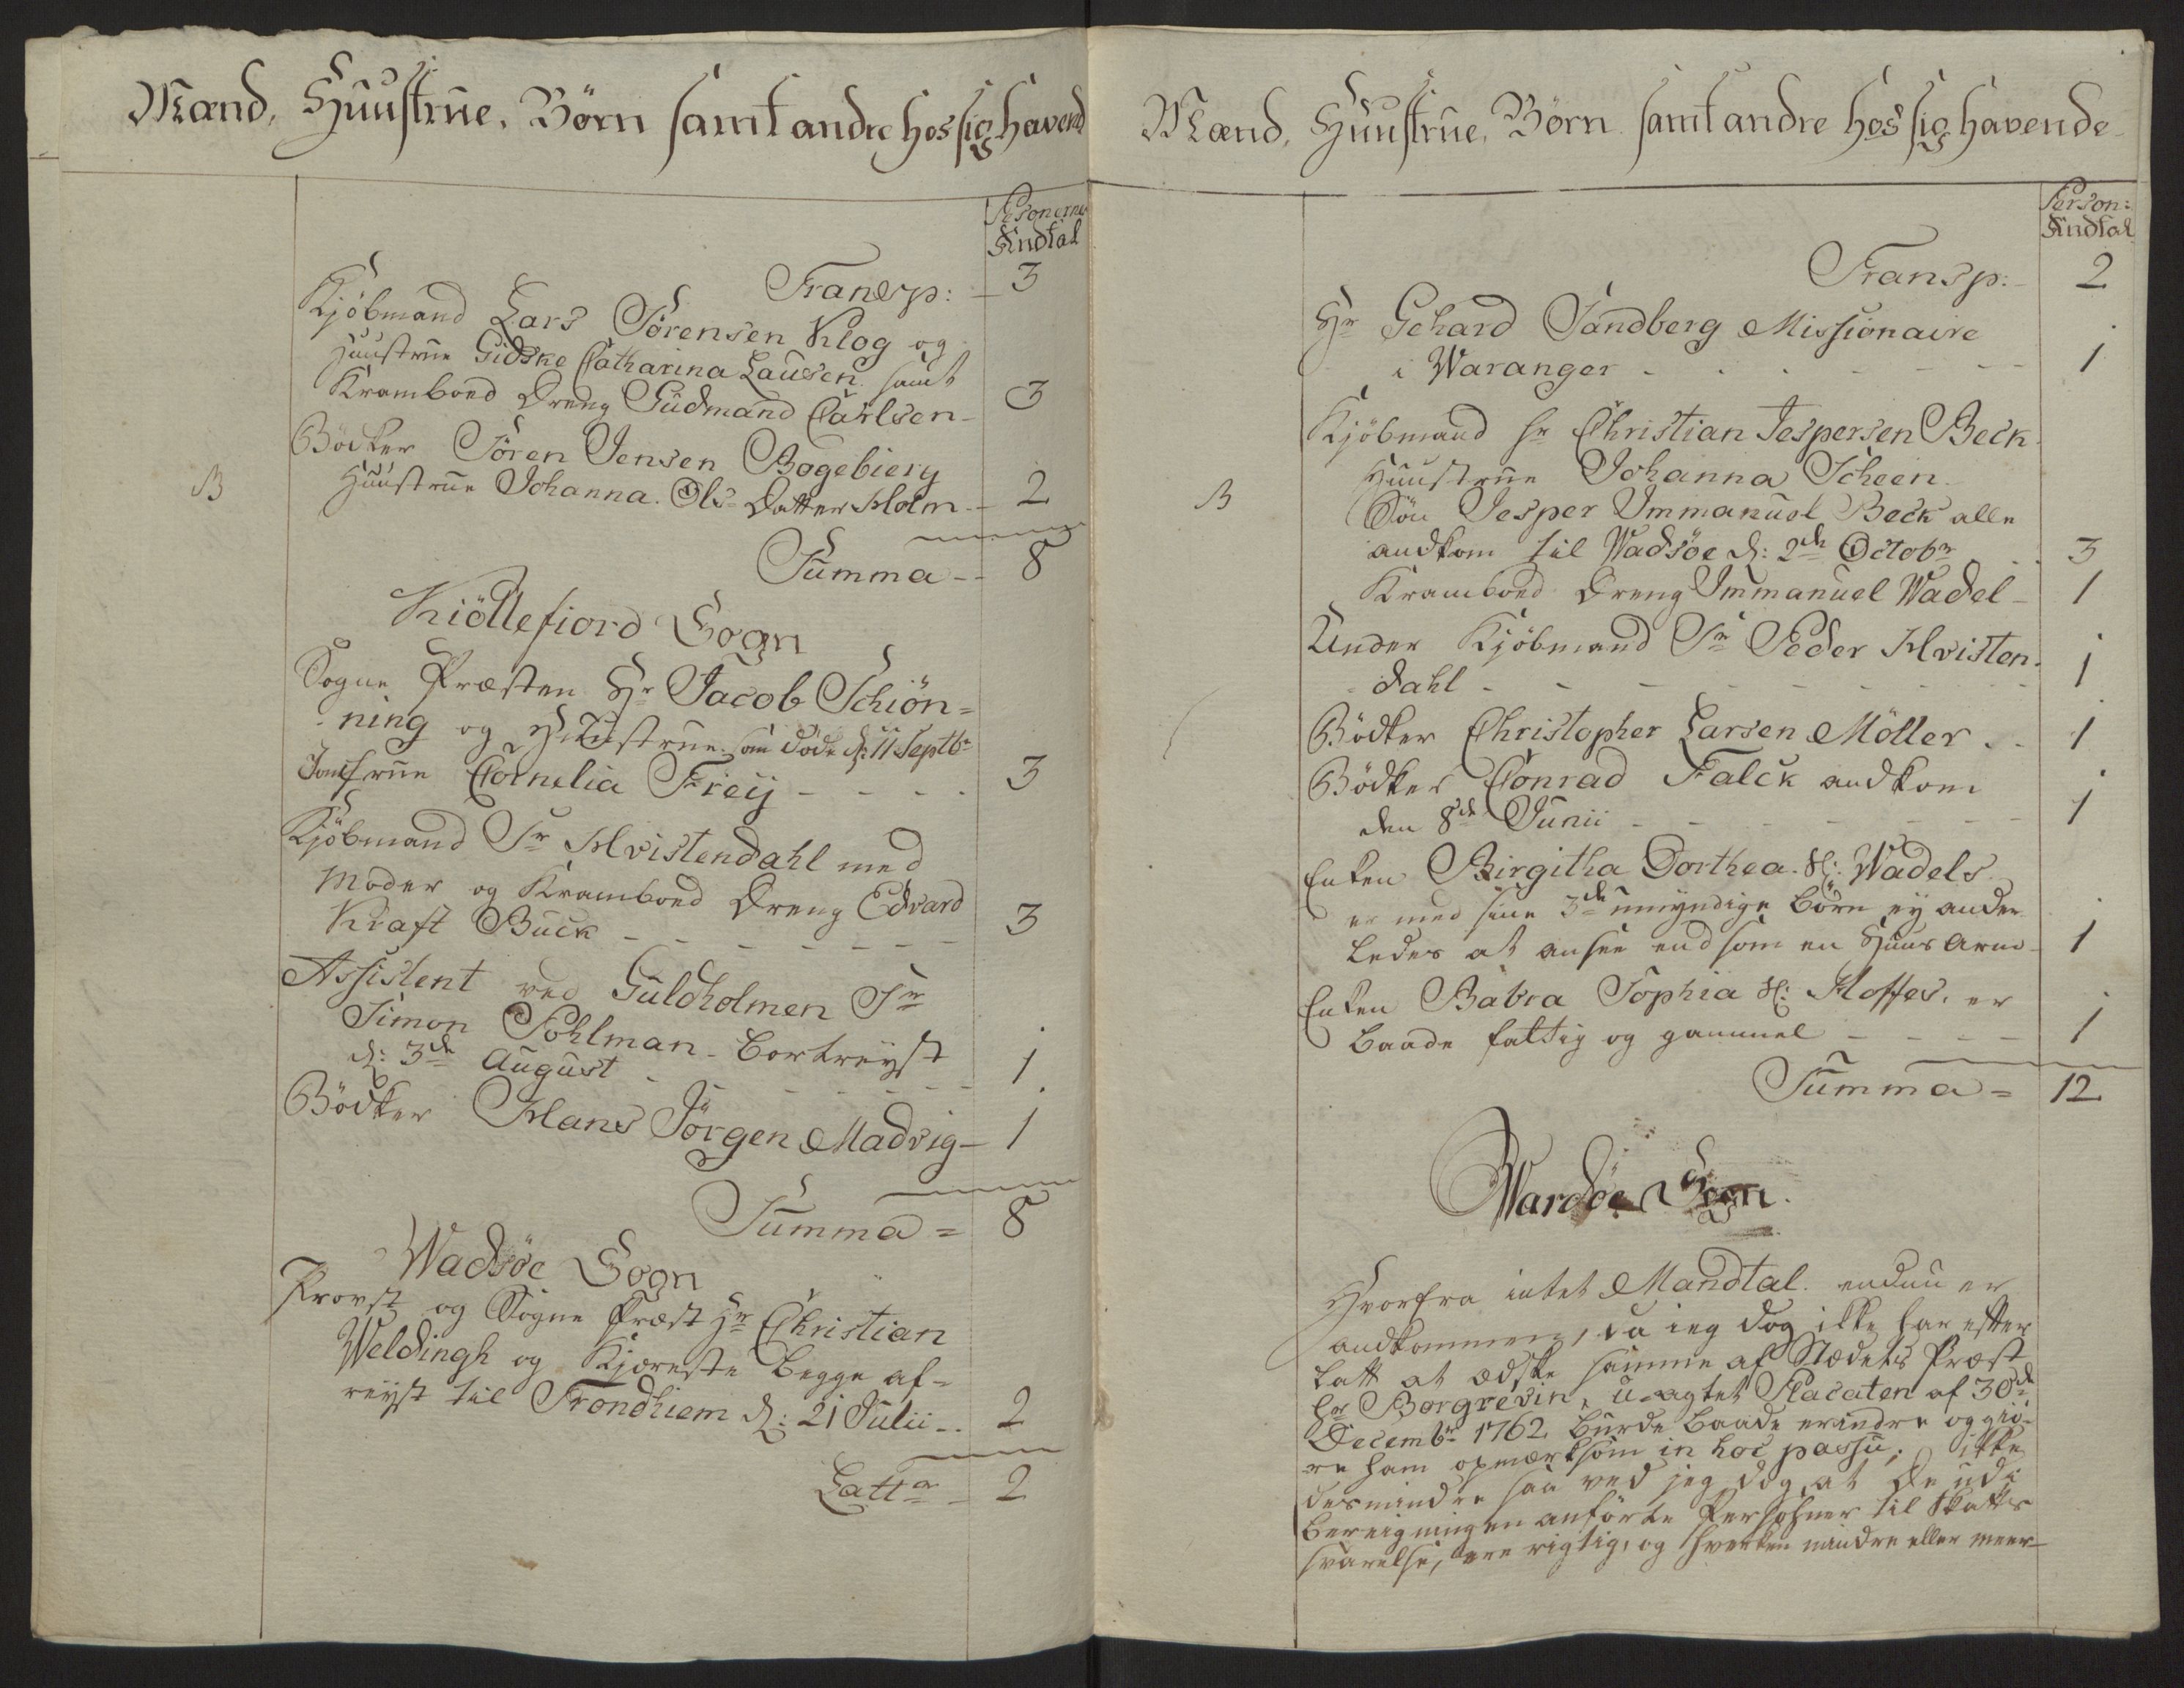 Mænd, Huustrue, Børn samt andre hos sig havend
Personernes
Andtal
Transp: 3
Kjøbmand Lars Sørensen Klog og
Huustrue Gidske Catharina Lausen samt
Kramboed Dreng Gudmand Carlsen - 3
Bødker Søren Jensen Bogebierg
B
Huustrue Johanna Ols Datter Holm - 2
Summa - 8
Kiøllefiord Sogn
Sogne Præsten Hr Jacob Schiøn=
ning og Huustrue som døde d: 11 Septbr
Jomfrue Cornelia Freij - 3
Kjøbmand Sr Hvistendahl med
Moder og Kramboed Dreng Edvard
Kraft Buck - 3
Assistent ved Guldholmen Sr
Simon Pohlman - bortreyst
d: 3de August - 1
Bødker Hans Jørgen Madvig - 1
Summa = 8
Wadsøe Sogn
Provst og Sogne Præst Hr Christian
Weldingh og Kjæreste begge af=
reyst til Trondhiem d: 21 Julii - 2
Latt - 2
Mænd, Huustrue, Børn samt andre hos sig havende
Person:
Andtal
Transp: 2
Hr Gehard Sandberg Missionaire
i Waranger - 1
Kjøbmand Sr Christian Jespersen Beck
Huustrue Johanna Scheen
B
Søn Jesper Immanuel Beck alle
andkom til Wadsøe d: 2de Octobr 3
Kramboed Dreng Immanuel Wadel - 1
Under Kjøbmand Sr Peder Hvisten-
dahl - 1
Bødker Christopher Larsen Møller - 1
Bødker Conrad Falck andkom
den 8de Junii - 1
Enken Birgitha Dorthea Sl: Wadels
er med sine 3de umyndige Børn ey ander
ledes at ansee end som en Huus Arm - 1
Enken Babra Sophia Sl: Hoffes, er
baade fattig og gammel - 1
Summa = 12
Wardøe Sogn.
Hvorfra intet Mandtal endnu er
andkommen, da ieg dog ikke har efter
latt at ædske samme af Stædets Præst
Hr Borgrevin, u-agtet Placaten af 30de
Decembr 1762 burde baade erindre og giø-
re ham opmærksom in hoc passu; ikke
desmindre saa ved jeg dog, at de udi
bereigningen anførte Persohner til Skatts
svarelse, ere rigtig, og hverken mindre eller meer